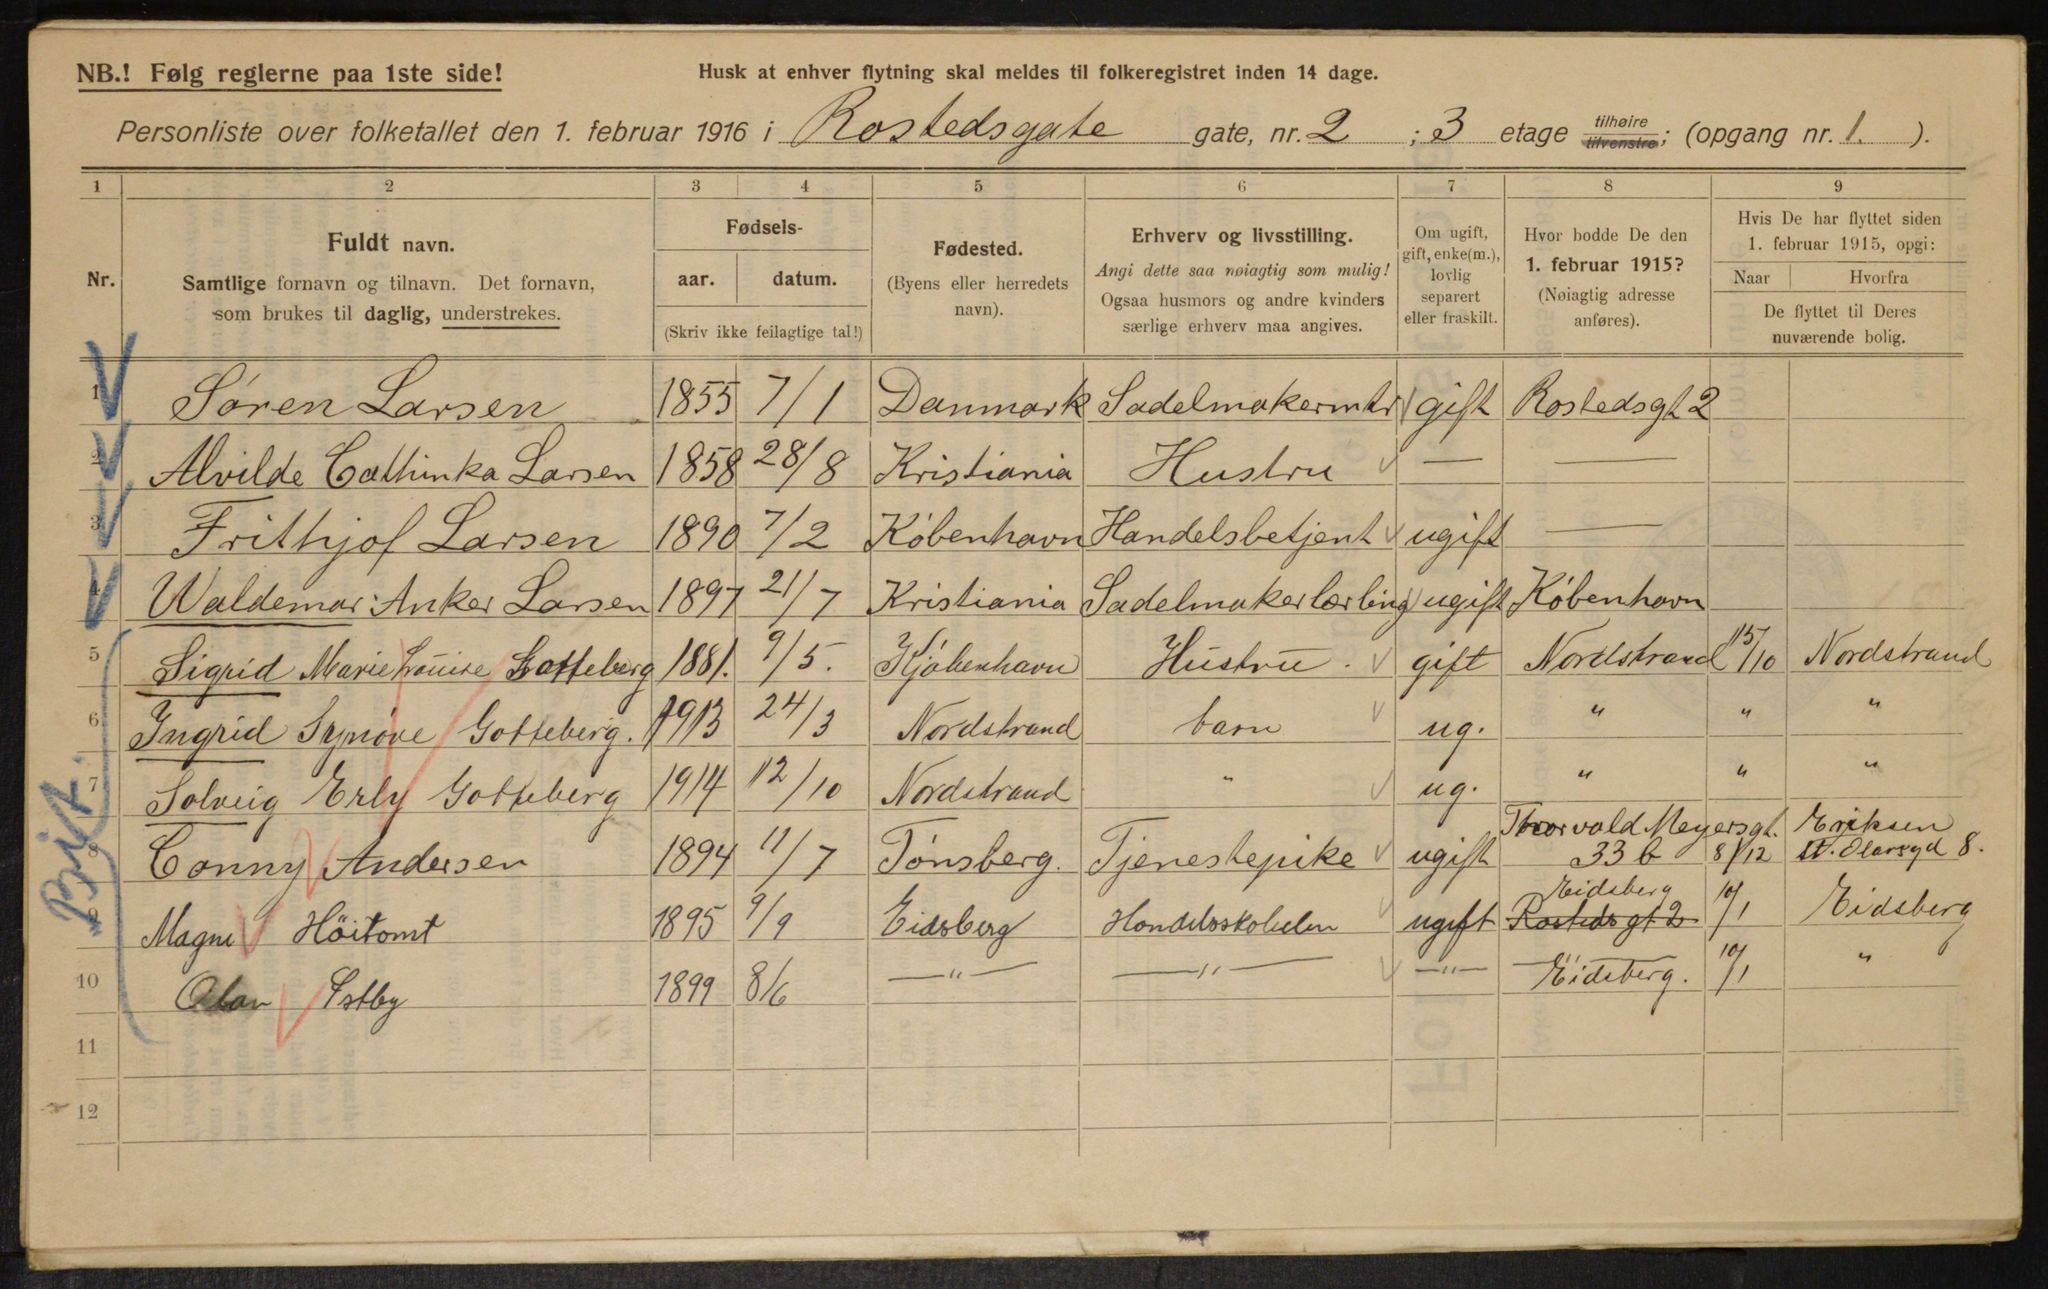 NB.! Følg reglerne paa 1ste side!
Husk at enhver flytning skal meldes til folkeregistret inden 14 dage.
Personliste over folketallet den 1. februar 1916 i Rostedsgate gate, nr. 2 ; 3 etage tilhøire tilvenstre; (opgang nr. 1. ).
1 2 3 4 5 6 7 8 9
Nr.
Fuldt navn.
Samtlige fornavn og tilnavn. Det fornavn,
som brukes til daglig, understrekes.
Fødsels-
aar. datum.
(Skriv ikke feilagtige tal!)
Fødested.
(Byens eller herredets
navn).
Erhverv og livsstilling.
Angi dette saa nøiagtig som mulig!
Ogsaa husmors og andre kvinders
særlige erhverv maa angives.
Om ugift,
gift, enke(m.),
lovlig
separert
eller fraskilt.
Hvor bodde De den
1. februar 1915?
(Nøiagtig adresse
anføres).
Hvis De har flyttet siden
1. februar 1915, opgi:
Naar Hvorfra
De flyttet til Deres
nuværende bolig.
1 Sören Larsen 1855 7/1 Danmark Sadelmakermtr gift Rostedsgt 2
2 Alvilde Cathinka Larsen 1858 28/8 Kristiania Hustru — —
3 Frithjof Larsen 1890 7/2 København Handelsbetjent ugift —
4 Waldemar Anker Larsen 1897 21/7 Kristiania Sadelmakerlærling ugift København
5 Sigrid Marie Louise Gotteberg 1881. 9/5. Kjøbenhavn Hustru. gift Nordstrand 15/10 Nordstrand
6 Ingrid Synöve Gotteberg. 1913 24/3 Nordstrand barn ug. " " "
7 Solveig Erly Gotteberg 1914 12/10 Nordstrand " ug. " " "
8 Conny Andersen 1894 11/7 Tønsberg. Tjenestepike ugift Thorvald Meyersgt. 33 b 8/12 Eriksen St. Olavsgd 8.
9 Magne Höitomt 1895 9/9 Eidsberg Handelsskolelev ugift Eidsberg Rostedsgt 2 10/1 Eidsberg
10 Olav Østby 1899 8/6 —"— —"— —"— Eidsberg. 10/1 "
11
12